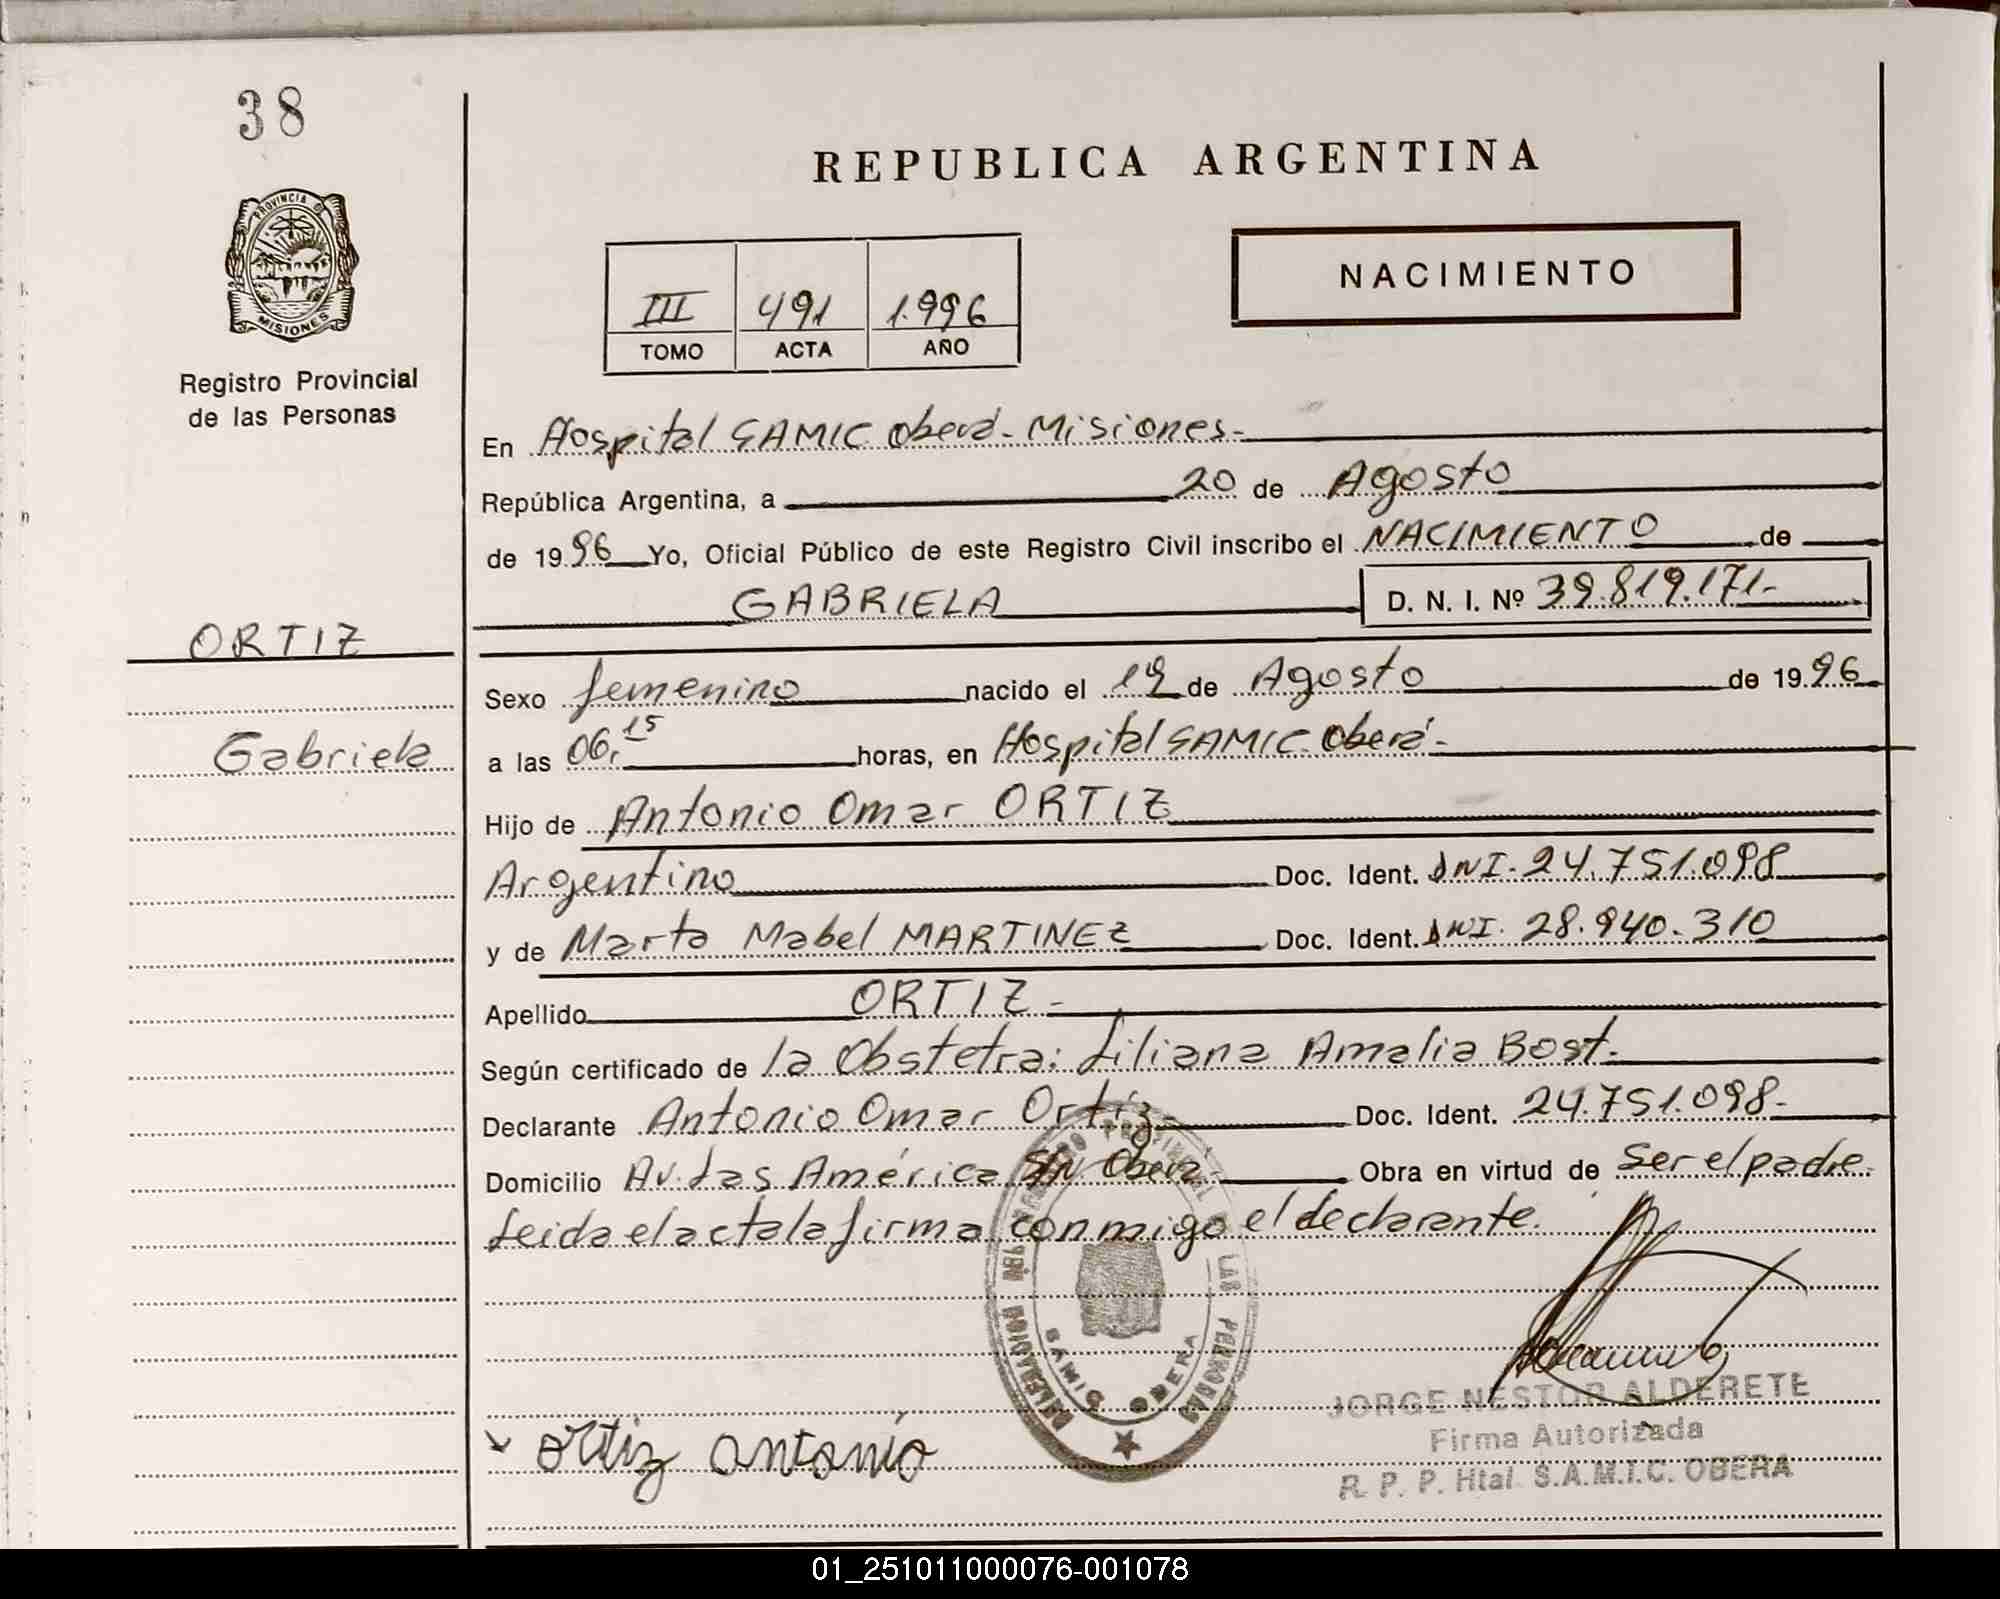 38
REPUBLICA ARGENTINA
PROVINCIA D
MISIONES
Registro Provincial
de las Personas
NACIMIENTO
III 491 1.996
TOMO ACTA AÑO
En Hospital SAMIC Oberá - Misiones -
República Argentina, a 20 de Agosto
de 1996 Yo, Oficial Público de este Registro Civil inscribo el NACIMIENTO de
GABRIELA D. N. I. Nº 39.819.171.-
ORTIZ
Gabriela
Sexo femenino nacido el 19 de Agosto de 1996
a las 06,15 horas, en Hospital SAMIC Oberá -
Hijo de Antonio Omar ORTIZ
Argentino Doc. Ident. DNI. 24.751.098
y de Marta Mabel MARTINEZ Doc. Ident. DNI. 28.940.310
Apellido ORTIZ -
Según certificado de la Obstetra: Liliana Amalia Bost.
Declarante Antonio Omar Ortíz Doc. Ident. 24.751.098-
Domicilio Av. Las América S/N Oberá Obra en virtud de Ser el padre
Leida el acta la firma conmigo el declarante.
LAS PERSONAS
OBERA
JORGE NESTOR ALDERETE
Firma Autorizada
R. P. P. Htal. S.A.M.I.C. OBERA
ortiz antonio
01_251011000076-001078